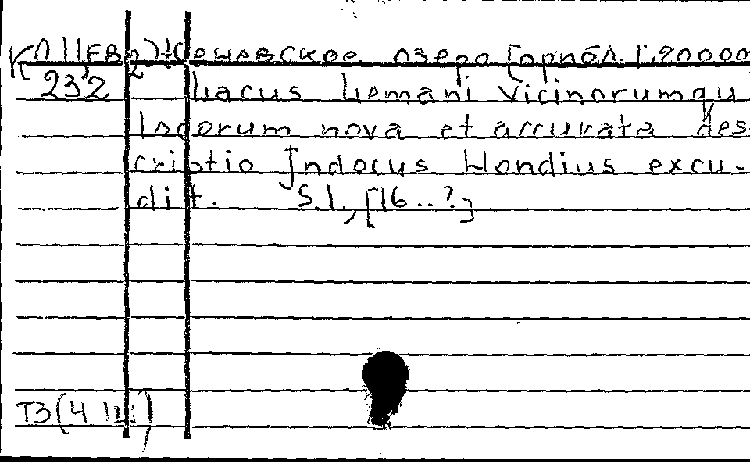 К 0 11/ЕВ 2) Женевское озеро [ориб. 1:90000
232 Lacus Lemani vicinorumqu
locorum nova et accurata des-
criptio Jndocus Hondius excu-
dit. S.l., [16..?]
ТЗ(4 Ш)